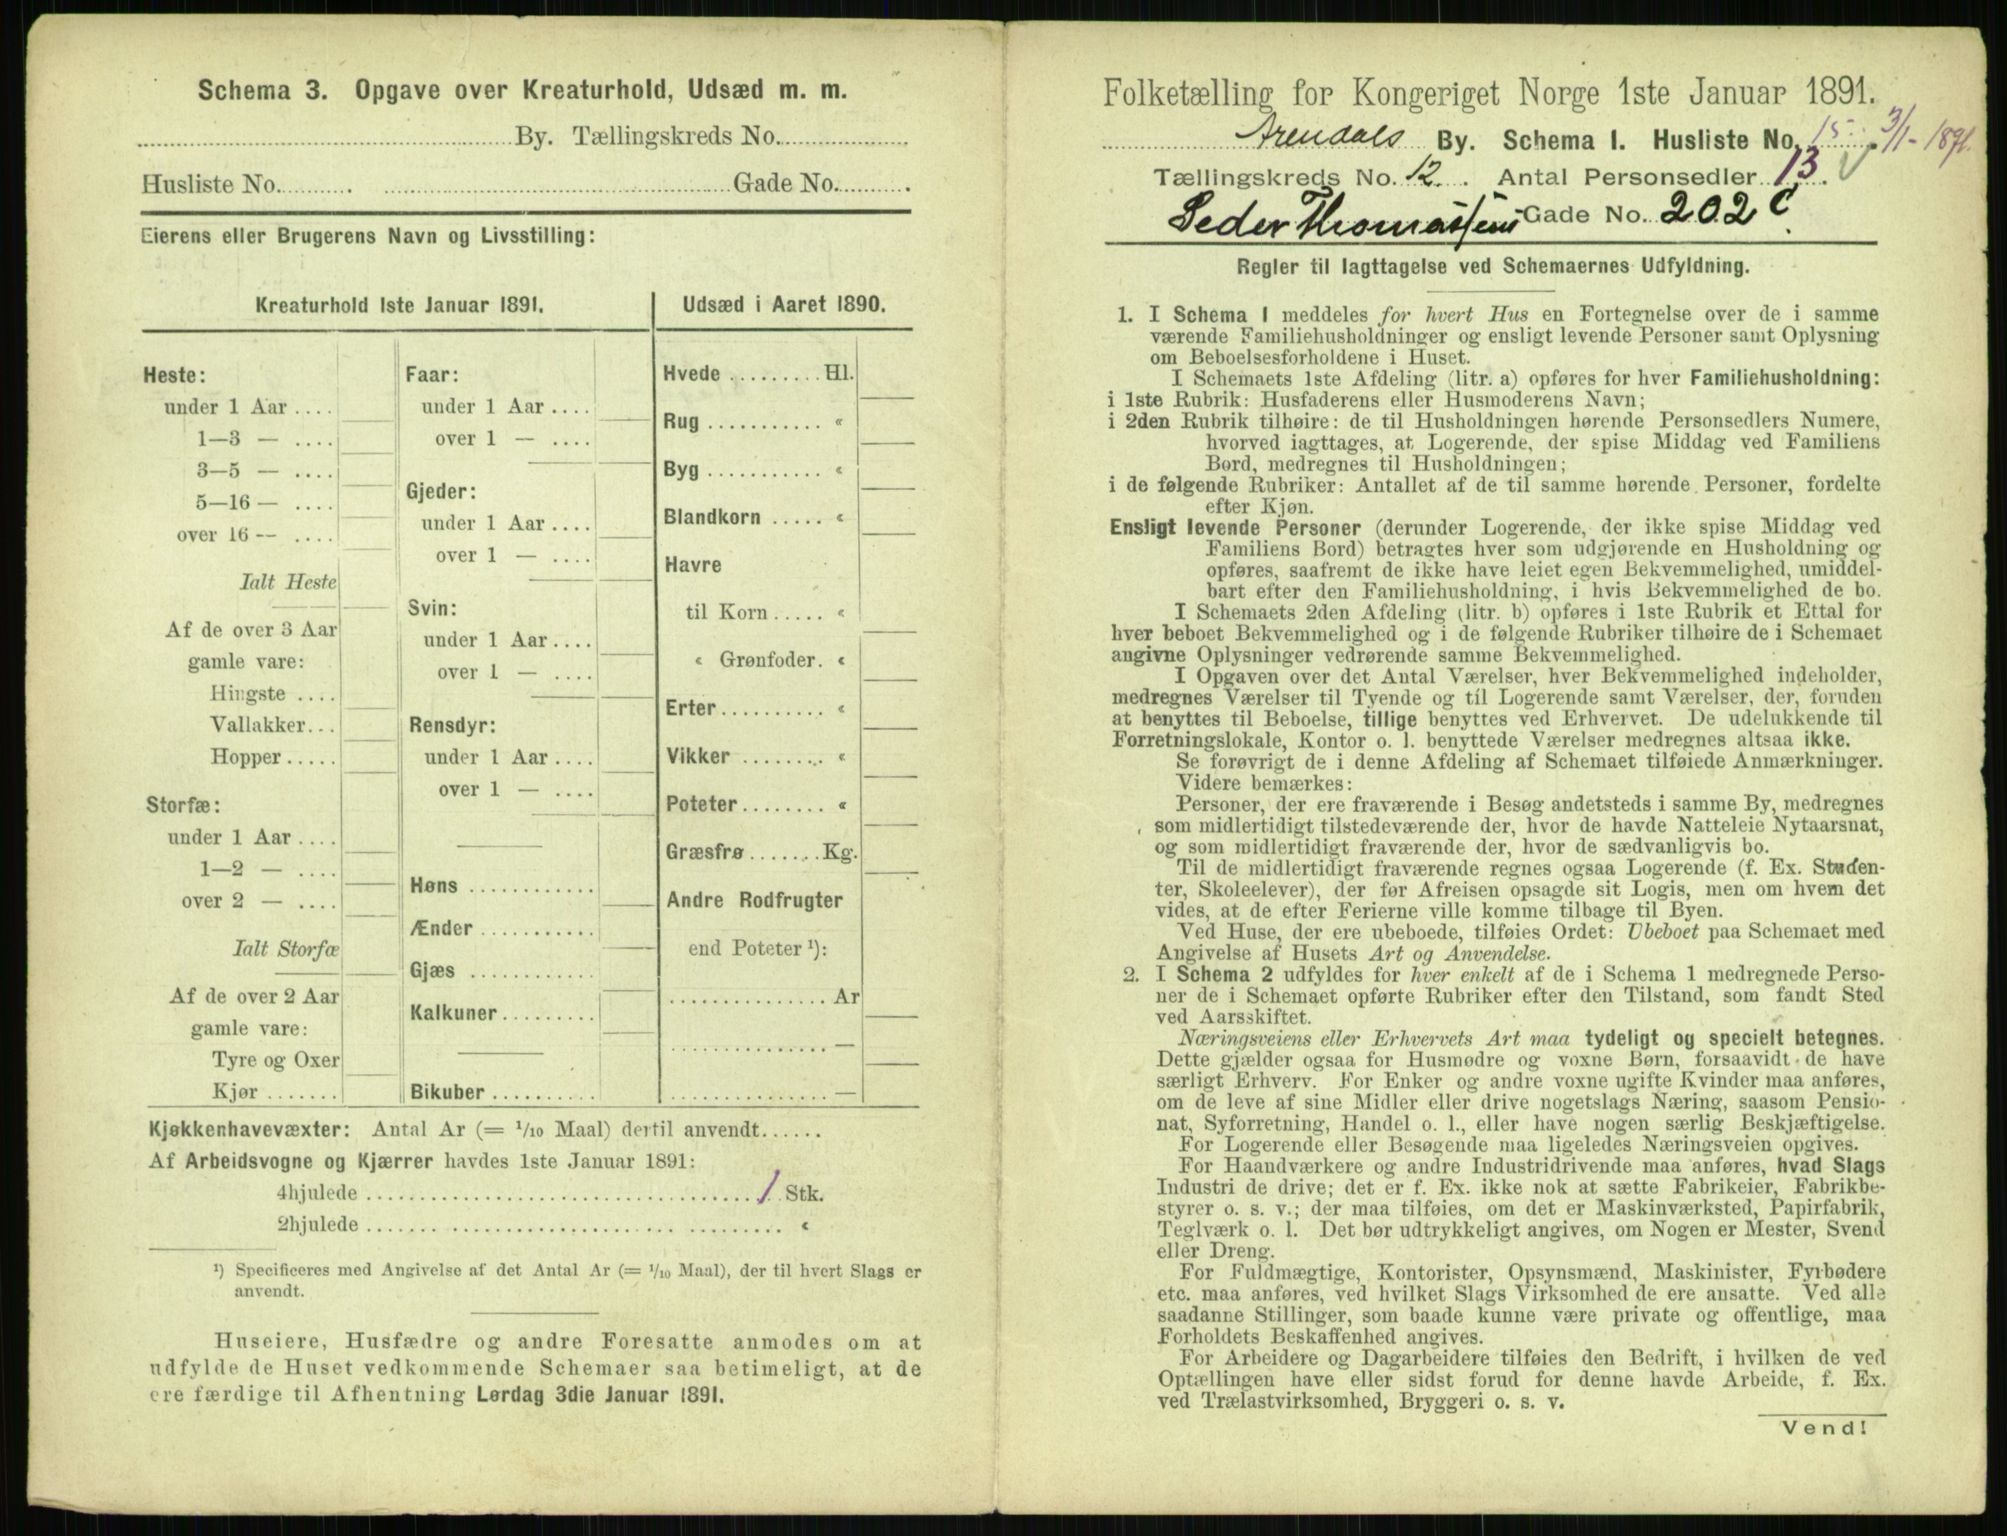 Schema 3. Opgave over Kreaturhold, Udsæd m. m.
By. Tællingskreds No.
Husliste No. Gade No.
Eierens eller Brugerens Navn og Livsstilling:
Kreaturhold 1ste Januar 1891.
Heste:
under 1 Aar ....
1—3 — ....
3—5 — ....
5—16 — ....
over 16 — ....
Ialt Heste
Af de over 3 Aar
gamle vare:
Hingste ....
Vallakker...
Hopper.....
Storfæ:
under 1 Aar ....
1—2 — ....
over 2 — ....
Ialt Storfæ
Af de over 2 Aar
gamle vare:
Tyre og Oxer
Kjør.......
Faar:
under 1 Aar ....
over 1 — ....
Gjeder:
under 1 Aar ....
over 1 — ....
Svin:
under 1 Aar ....
over 1 — ....
Rensdyr:
under 1 Aar ....
over 1 — ....
Høns ............
Ænder ...........
Gjæs ............
Kalkuner.........
Bikuber ..........
Udsæd i Aaret 1890.
Hvede .........Hl.
Rug ........... «
Byg ........... «
Blandkorn ..... «
Havre
til Korn..... «
« Grønfoder. «
Erter.......... «
Vikker ........ «
Poteter........ «
Græsfrø.......Kg.
Andre Rodfrugter
end Poteter ¹):
............... Ar
............... —
............... —
Kjøkkenhavevæxter: Antal Ar (= 1/10 Maal) dertil anvendt......
Af Arbeidsvogne og Kjærrer havdes 1ste Januar 1891:
4hjulede .................................... 1 Stk.
2hjulede ..................................... «
¹) Specificeres med Angivelse af det Antal Ar (= 1/10 Maal), der til hvert Slags er
anvendt.
Huseiere, Husfædre og andre Foresatte anmodes om at
udfylde de Huset vedkommende Schemaer saa betimeligt, at de
ere færdige til Afhentning Lørdag 3die Januar 1891.
Folketælling for Kongeriget Norge 1ste Januar 1891.
Arendals By. Schema 1. Husliste No. 15. 3/1-1891.
Tællingskreds No. 12. Antal Personsedler 13.
Peder Thomassens Gade No. 202 C.
Regler til Iagttagelse ved Schemaernes Udfyldning.
1. I Schema 1 meddeles for hvert Hus en Fortegnelse over de i samme
værende Familiehusholdninger og ensligt levende Personer samt Oplysning
om Beboelsesforholdene i Huset.
I Schemaets 1ste Afdeling (litr. a) opføres for hver Familiehusholdning:
i 1ste Rubrik: Husfaderens eller Husmoderens Navn;
i 2den Rubrik tilhøire: de til Husholdningen hørende Personsedlers Numere,
hvorved iagttages, at Logerende, der spise Middag ved Familiens
Bord, medregnes til Husholdningen;
i de følgende Rubriker: Antallet af de til samme hørende Personer, fordelte
efter Kjøn.
Ensligt levende Personer (derunder Logerende, der ikke spise Middag ved
Familiens Bord) betragtes hver som udgjørende en Husholdning og
opføres, saafremt de ikke have leiet egen Bekvemmelighed, umiddel-
bart efter den Familiehusholdning, i hvis Bekvemmelighed de bo.
I Schemaets 2den Afdeling (litr. b) opføres i 1ste Rubrik et Ettal for
hver beboet Bekvemmelighed og i de følgende Rubriker tilhøire de i Schemaet
angivne Oplysninger vedrørende samme Bekvemmelighed.
I Opgaven over det Antal Værelser, hver Bekvemmelighed indeholder,
medregnes Værelser til Tyende og til Logerende samt Værelser, der, foruden
at benyttes til Beboelse, tillige benyttes ved Erhvervet. De udelukkende til
Forretningslokale, Kontor o. l. benyttede Værelser medregnes altsaa ikke.
Se forøvrigt de i denne Afdeling af Schemaet tilføiede Anmærkninger.
Videre bemærkes:
Personer, der ere fraværende i Besøg andetsteds i samme By, medregnes
som midlertidigt tilstedeværende der, hvor de havde Natteleie Nytaarsnat,
og som midlertidigt fraværende der, hvor de sædvanligvis bo.
Til de midlertidigt fraværende regnes ogsaa Logerende (f. Ex. Studen-
ter, Skoleelever), der før Afreisen opsagde sit Logis, men om hvem det
vides, at de efter Ferierne ville komme tilbage til Byen.
Ved Huse, der ere ubeboede, tilføies Ordet: Ubeboet paa Schemaet med
Angivelse af Husets Art og Anvendelse.
2. I Schema 2 udfyldes for hver enkelt af de i Schema 1 medregnede Perso-
ner de i Schemaet opførte Rubriker efter den Tilstand, som fandt Sted
ved Aarsskiftet.
Næringsveiens eller Erhvervets Art maa tydeligt og specielt betegnes.
Dette gjælder ogsaa for Husmødre og voxne Børn, forsaavidt de have
særligt Erhverv. For Enker og andre voxne ugifte Kvinder maa anføres,
om de leve af sine Midler eller drive nogetslags Næring, saasom Pensio-
nat, Syforretning, Handel o. l., eller have nogen særlig Beskjæftigelse.
For Logerende eller Besøgende maa ligeledes Næringsveien opgives.
For Haandværkere og andre Industridrivende maa anføres, hvad Slags
Industri de drive; det er f. Ex. ikke nok at sætte Fabrikeier, Fabrikbe-
styrer o. s. v.; der maa tilføies, om det er Maskinværksted, Papirfabrik,
Teglværk o. l. Det bør udtrykkeligt angives, om Nogen er Mester, Svend
eller Dreng.
For Fuldmægtige, Kontorister, Opsynsmænd, Maskinister, Fyrbødere
etc. maa anføres, ved hvilket Slags Virksomhed de ere ansatte. Ved alle
saadanne Stillinger, som baade kunne være private og offentlige, maa
Forholdets Beskaffenhed angives.
For Arbeidere og Dagarbeidere tilføies den Bedrift, i hvilken de ved
Optællingen have eller sidst forud for denne havde Arbeide, f. Ex.
ved Trælastvirksomhed, Bryggeri o. s. v.
Vend!